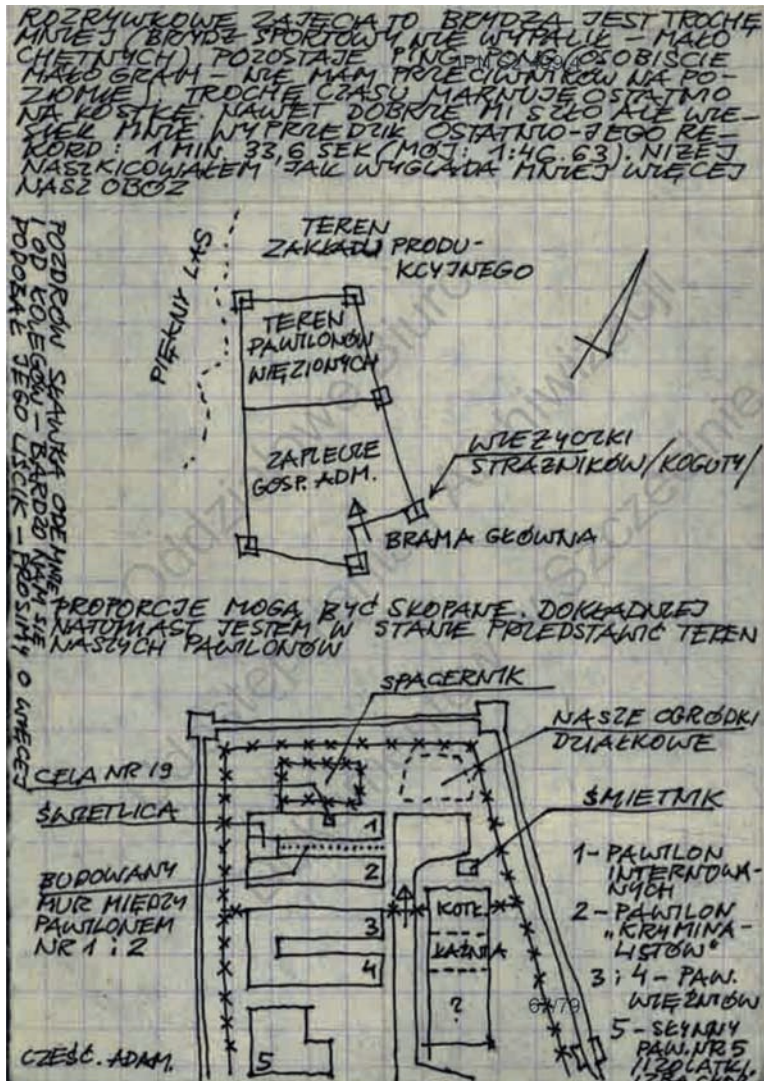 ROZRYWKOWE ZAJĘCIA TO BRYDŻA JEST TROCHĘ
MNIEJ (BRYDŻ SPORTOWY NIE WYPALIŁ – MAŁO
CHĘTNYCH) POZOSTAJE PING-PONG (OSOBIŚCIE
MAŁO GRAM – NIE MAM PRZECIWNIKÓW NA PO-
ZIOMIE). TROCHĘ CZASU MARNUJĘ OSTATNIO
NA KOSTKĘ. NAWET DOBRZE MI SZŁO ALE WIE-
SIEK MNIE WYPRZEDZIŁ OSTATNIO – JEGO RE-
KORD: 1 MIN. 33,6 SEK (MÓJ: 1:46.63). NIŻEJ
NASZKICOWAŁEM JAK WYGLĄDA MNIEJ WIĘCEJ
NASZ OBÓZ
POZDRÓW SŁAWKA ODEMNIE
I OD KOLEGÓW – BARDZO NAM SIĘ
PODOBAŁ JEGO LIŚCIK – PROSIMY O WIĘCEJ
TEREN
ZAKŁADU PRODU-
KCYJNEGO
PIĘKNY LAS
TEREN
PAWILONÓW
WIĘZIONYCH
ZAPLECZE
GOSP. ADM.
WIEŻYCZKI
STRAŻNIKÓW /KOGUTY/
BRAMA GŁÓWNA
PROPORCJE MOGĄ BYĆ SKOPANE. DOKŁADNIEJ
NATOMIAST JESTEM W STANIE PRZEDSTAWIĆ TEREN
NASZYCH PAWILONÓW
SPACERNIK
NASZE OGRÓDKI
DZIAŁKOWE
CELA NR 19
ŚWIETLICA
ŚMIETNIK
BUDOWANY
MUR MIĘDZY
PAWILONEM
NR 1 i 2
1
2
3
4
5
KOTŁ.
ŁAŹNIA
?
1 – PAWILON
INTERNOWA-
NYCH
2 – PAWILON
„KRYMINA-
LISTÓW"
3 i 4 – PAW.
WIĘŹNIÓW
5 – SŁYNNY
PAW. NR 5
/IZOLATKI,
CZEŚĆ. ADAM.
67/79
Oddziałowe Biuro
Udostępniania i Archiwizacji
w Szczecinie